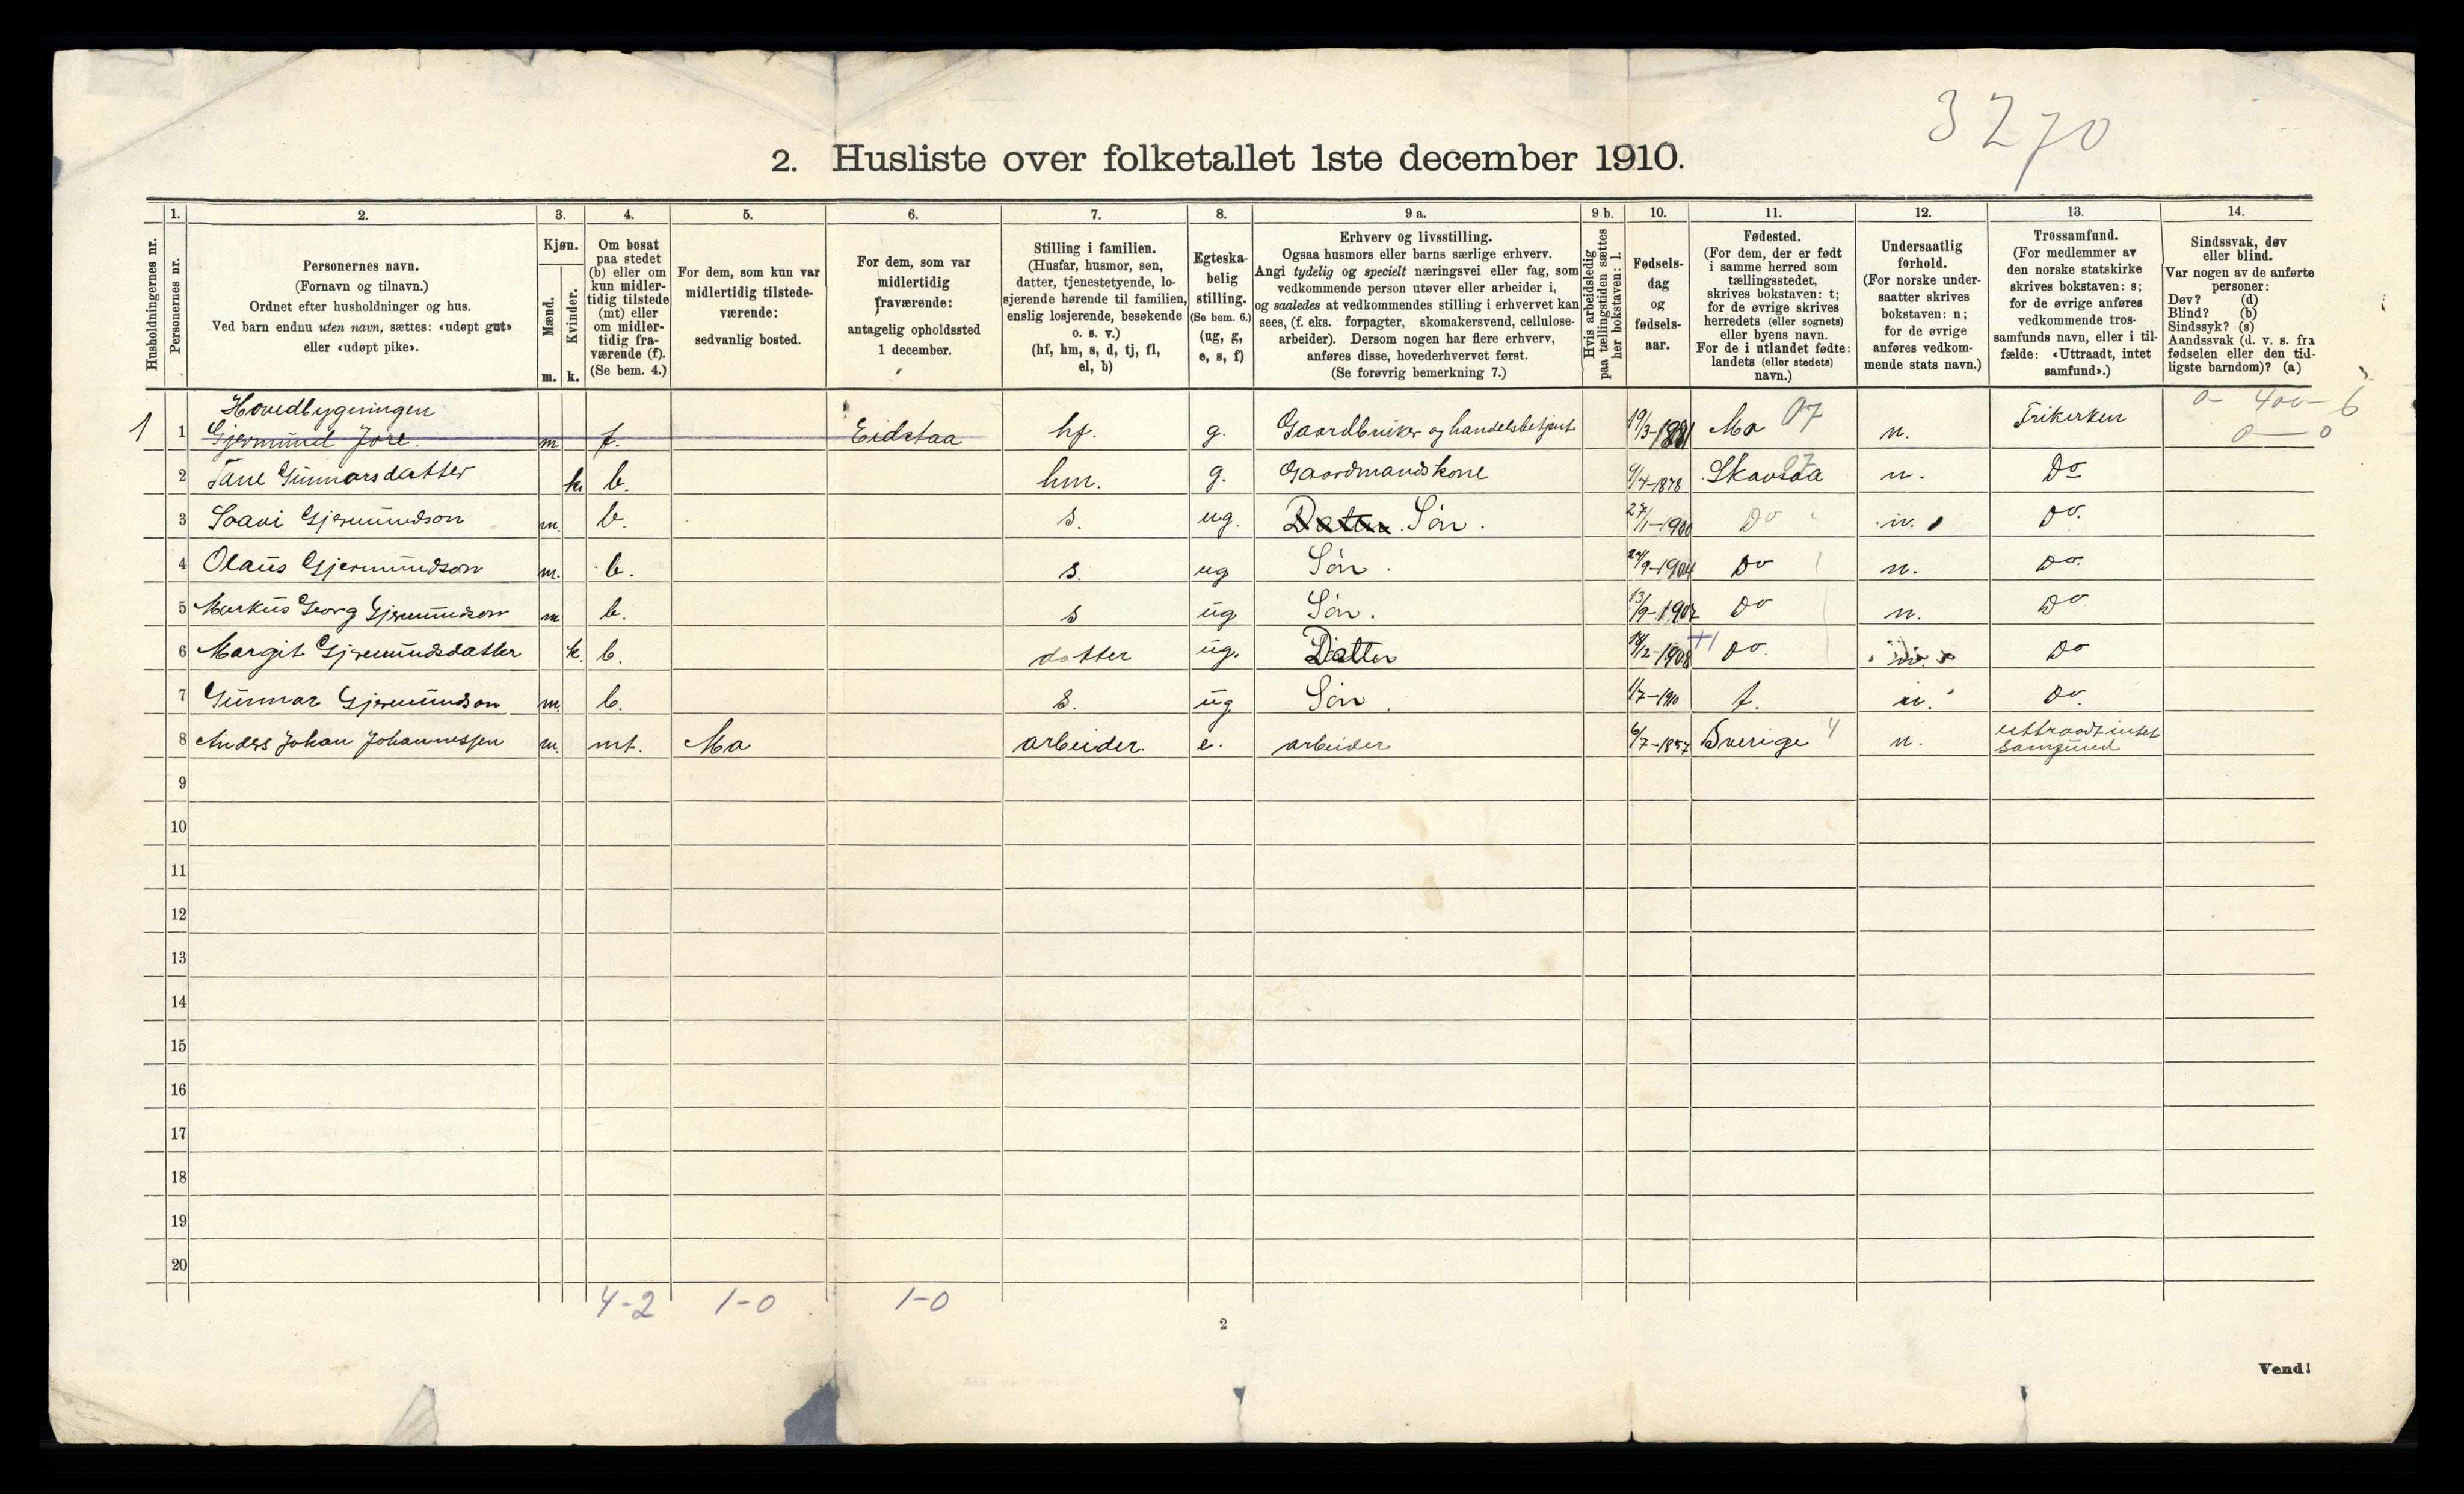 3270
2. Husliste over folketallet 1ste december 1910.
1. 2. 3. 4. 5. 6. 7. 8. 9 a. 9 b. 10. 11. 12. 13. 14.
Husholdningernes nr.
Personernes nr.
Personernes navn.
(Fornavn og tilnavn.)
Ordnet efter husholdninger og hus.
Ved barn endnu uten navn, sættes: «udøpt gut»
eller «udøpt pike».
Kjøn.
Mænd.
Kvinder.
m. k.
Om bosat
paa stedet
(b) eller om
kun midler-
tidig tilstede
(mt) eller
om midler-
tidig fra-
værende (f).
(Se bem. 4.)
For dem, som kun var
midlertidig tilstede-
værende:
sedvanlig bosted.
For dem, som var
midlertidig
fraværende:
antagelig opholdssted
1 december.
Stilling i familien.
(Husfar, husmor, søn,
datter, tjenestetyende, lo-
sjerende hørende til familien,
enslig losjerende, besøkende
o. s. v.)
(hf, hm, s, d, tj, fl,
el, b)
Egteska-
belig
stilling.
(Se bem. 6.)
(ug, g,
e, s, f)
Erhverv og livsstilling.
Ogsaa husmors eller barns særlige erhverv.
Angi tydelig og specielt næringsvei eller fag, som
vedkommende person utøver eller arbeider i,
og saaledes at vedkommendes stilling i erhvervet kan
sees, (f. eks. forpagter, skomakersvend, cellulose-
arbeider). Dersom nogen har flere erhverv,
anføres disse, hovederhvervet først.
(Se forøvrig bemerkning 7.)
Hvis arbeidsledig
paa tællingstiden sættes
her bokstaven: l.
Fødsels-
dag
og
fødsels-
aar.
Fødested.
(For dem, der er født
i samme herred som
tællingsstedet,
skrives bokstaven: t;
for de øvrige skrives
herredets (eller sognets)
eller byens navn.
For de i utlandet fødte:
landets (eller stedets)
navn.)
Undersaatlig
forhold.
(For norske under-
saatter skrives
bokstaven: n;
for de øvrige
anføres vedkom-
mende stats navn.)
Trossamfund.
(For medlemmer av
den norske statskirke
skrives bokstaven: s;
for de øvrige anføres
vedkommende tros-
samfunds navn, eller i til-
fælde: «Uttraadt, intet
samfund».)
Sindssvak, døv
eller blind.
Var nogen av de anførte
personer:
Døv? (d)
Blind? (b)
Sindssyk? (s)
Aandssvak (d. v. s. fra
fødselen eller den tid-
ligste barndom)? (a)
Hovedbygningen
1 1 Gjermund Jore. m. f. Eidstaa hf. g. Gaardbruker og handelsbetjent 19/3-1881 Mo 07 n. Frikerken 0- 400-6
0-0
2 Tane Gunnarsdatter k. b. hm. g. Gaardmandskone 9/4-1878 Skavsaa n. Do
3 Gjermundson m. b. s. ug. Datter Søn. 27/1-1900 Do n. Do.
4 Olaus Gjermundson m. b. s. ug Søn. 24/9-1904 Do n. Do.
5 Markus Georg Gjermundson m b. s ug Søn. 13/9-1907 Do n. Do
6 Margit Gjermundsdatter k. b. datter ug. Datter 18/2-1908 Do. Do
7 Gunnar Gjermundson m. b. s. ug Søn. 1/7-1910 t. n. Do.
8 Anders Johan Johannessen m. mt. Mo arbeider. e. arbeider 6/7-1857 Sverige 4 n. uttraadt intet
samfund
9
10
11
12
13
14
15
16
17
18
19
20
4-2 1-0 1-0
2
Vend!